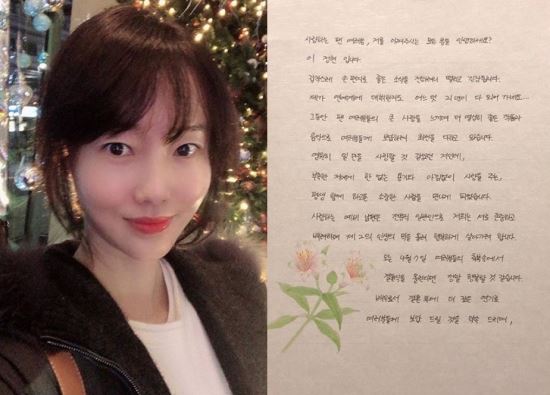 사랑하는 팬 여러분, 저를 아껴주시는 모든 분들 안녕하세요?
이 정현 입니다.
갑작스레 손 편지로 좋은 소식을 전하려니 떨리고 긴장됩니다.
제가 연예계에 데뷔한지도 어느 덧 21년이 다 되어 가네요...
그동안 팬 여러분들의 큰 사랑을 느끼며 더 열심히 좋은 작품과
음악으로 여러분들께 보답하려 최선을 다하고 있습니다.
영원히 일 만을 사랑할 것 같았던 저에게,
부족한 저에게 한 없는 용기와 아낌없이 사랑을 주는,
평생 함께 하고픈 소중한 사람을 만나게 되었습니다.
사랑하는 예비 남편은 전문직 일반인으로 저희는 서로 존중하고
배려하며 제 2의 인생의 막을 올려 행복하게 살아가려 합니다.
오는 4월 7일 여러분들의 축복속에서
결혼식을 올린다면 정말 행복할 것 같습니다.
배우로서 결혼 후에 더 깊은 연기로
여러분들께 보답 드릴 것을 약속 드리며,